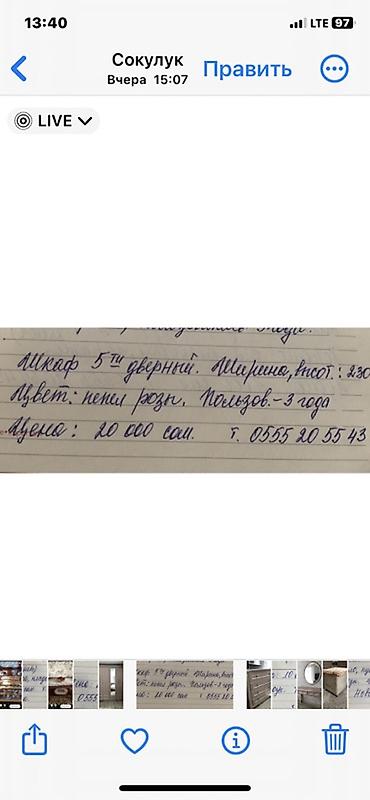 13:40
LTE 97
Сокулук
Вчера 15:07
Править
LIVE
Шкаф 5ти дверный. Ширина, высот.: 230
Цвет: пепел розы. Пользов. - 3 года
Цена: 20 000 сом. т. 0555 20 55 43